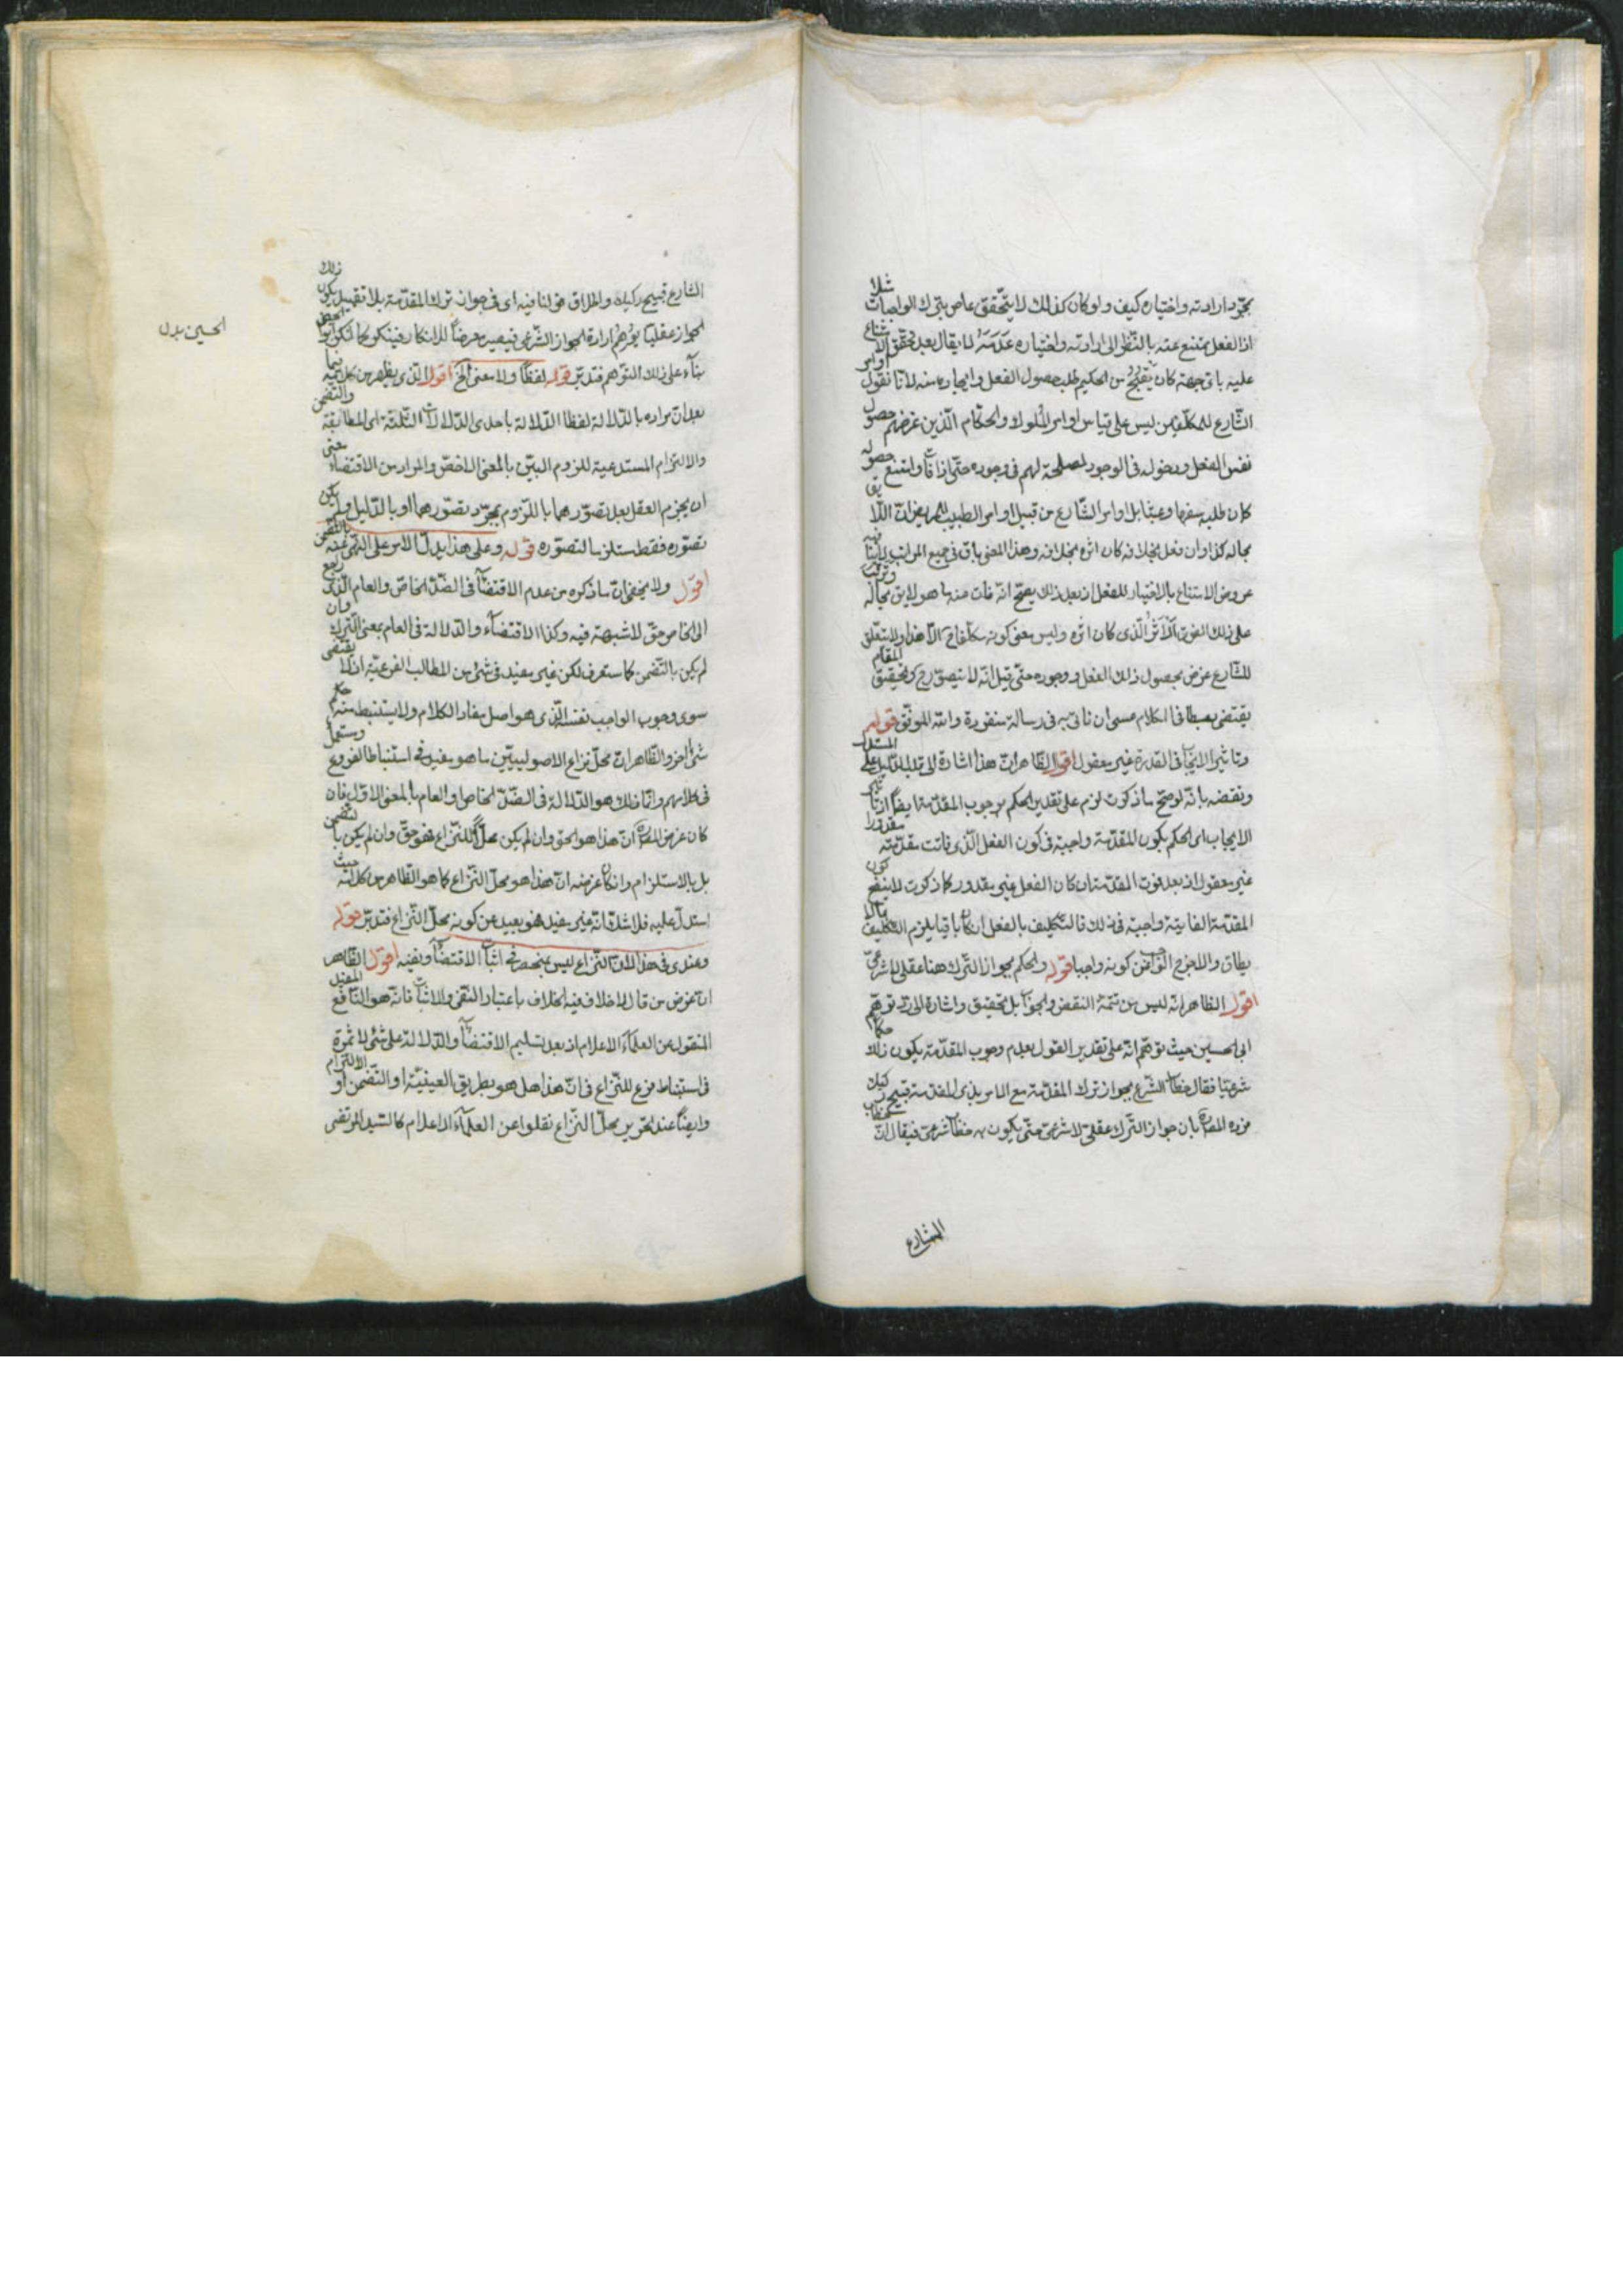 بمجرد ارادته واختياره كيف ولو كان كذلك لا يتحقق عاص بترك الواجبات مثلا
اذ الفعل يمتنع عنه بالنظر الى ارادته واختياره عدمه لما يقال بعد تحقق الامتناع
عليه باى جهة كان يقبح من الحكيم طلب حصول الفعل وايجاده منه لانا نقول اوامر
الشارع للمكلفين ليس على قياس اوامر الملوك والحكام الذين غرضهم حصول
نفس الفعل ودخوله فى الوجود لمصلحة لهم فى وجوده حتى اذا فات وامتنع حصوله
كان طلبه سفها وعبثا بل اوامر الشارع من قبيل اوامر الطبيب للمريض ان اللايق
بحاله كذا وان فعل بخلافه كان اثره بخلافه وهذا المعنى باق فى جميع المراتب لا ينافيه
عروض الامتناع بالاختيار للفعل اذ بعد ذلك يصح انه فات منه ما هو لايق بحاله وترتب
على ذلك الفوت الاثر الذى كان اثره وليس معنى كونه مكلفا ح الا هذا ولا يتعلق
للشارع غرض بحصول ذلك الفعل ووجوده حتى قيل انه لا يتصور ح وتحقيق المقام
يقتضى بسطا فى الكلام عسى ان ناتى به فى رسالة منفردة والله الموفق قوله
وتاثير الايجاب فى القدرة غير معقول اقول الظاهر ان هذا اشارة الى دليل المستدل
ونقضه بانه لو صح ما ذكرت لزم على تقدير الحكم بوجوب المقدمة ايضا اذ تاثير
الايجاب اى الحكم بكون المقدمة واجبة فى كون الفعل الذى فاتت مقدمته مقدورا
غير معقول اذ بعد فوت المقدمة ان كان الفعل غير مقدور كما ذكرت لا ينفع كون
المقدمة الفايتة واجبة فى ذلك فالتكليف بالفعل ان كان باقيا يلزم التكليف بما لا
يطاق والا خرج الواجب عن كونه واجبا قوله والحكم بجواز الترك هنا عقلى لا شرعى
اقول الظاهر انه ليس من تتمة النقض والجواب بل تحقيق واشارة الى رد توهم
ابى الحسين حيث توهم انه على تقدير القول بعدم وجوب المقدمة يكون ذلك حكما
شرعيا فقال خطاب الشرع بجواز ترك المقدمة مع الامر بذى المقدمة قبيح ركيك
فرده المصره بان جواز الترك عقلى لا شرعى حتى يكون به خطاب شرعى فيقال ان
الشارع
الشارع قبيح ركيك واطلاق قولنا فيه اى فى جواز ترك المقدمة بلا تقييد بكون ذلك
الجواز عقليا يوهم ارادة الجواز الشرعى فيصير معرضا للانكار فينكر كما انكر ابو
الحسين بدل
بناء على ذلك التوهم فتدبر قوله لفظا ولا معنى الخ اقول الذى يظهر من كلامه فيما
بعد ان مراده بالدلالة لفظا الدلالة باحدى الدلالات الثلثة اى المطابقة والتضمن
والالتزام المستدعية للزوم البين بالمعنى الاخص والمراد من الاقتضاء معنى
ان يجزم العقل بعد تصورهما باللزوم بمجرد تصورهما او بالدليل ولم يكن
تصوره فقط مستلزما لتصوره قوله وعلى هذا يدل الامر على النهى عنه بالتضمن
اقول ولا يخفى ان ما ذكره من عدم الاقتضاء فى الضد الخاص والعام الذى رجع
الى الخاص حق لا شبهة فيه وكذا الاقتضاء والدلالة فى العام بمعنى الترك وان
لم يكن بالتضمن كما ستعرف لكن غير مفيد فى شئ من المطالب الفرعية اذ لا يقتضى
سوى وجوب الواجب نفسه الذى هو اصل مفاد الكلام ولا يستنبط منه حكم
شئ اخر والظاهر ان محل نزاع الاصوليين ما هو يفيد فى استنباط الفروع ويستعمل
فى كلامهم وانما ذلك هو الدلالة فى الضد الخاص والعام بالمعنى الاول فان
كان غرض المصره ان هذا هو الحق وان لم يكن محلا للنزاع فهو حق وان لم يكن بالتضمن
بل بالاستلزام وان كان غرضه ان هذا هو محل النزاع كما هو الظاهر من كلامه حيث
استدل عليه فلا شك انه غير مفيد فهو بعيد عن كونه محل النزاع فتدبر قوله
وعندى فى هذا لان النزاع ليس بمنحصر فى اثبات الاقتضاء ونفيه اقول الظاهر
ان غرض من قال لا خلاف فيه الخلاف باعتبار النفى والاثبات فانه هو النافع المفيد
المنقول عن العلماء الاعلام اذ بعد تسليم الاقتضاء والدلالة على شئ لا ثمرة
فى استنباط فرع للنزاع فى ان هذا هل هو بطريق العينية او التضمن او الالتزام
وايضا عند تحرير محل النزاع نقلوا عن العلماء الاعلام كالسيد المرتضى